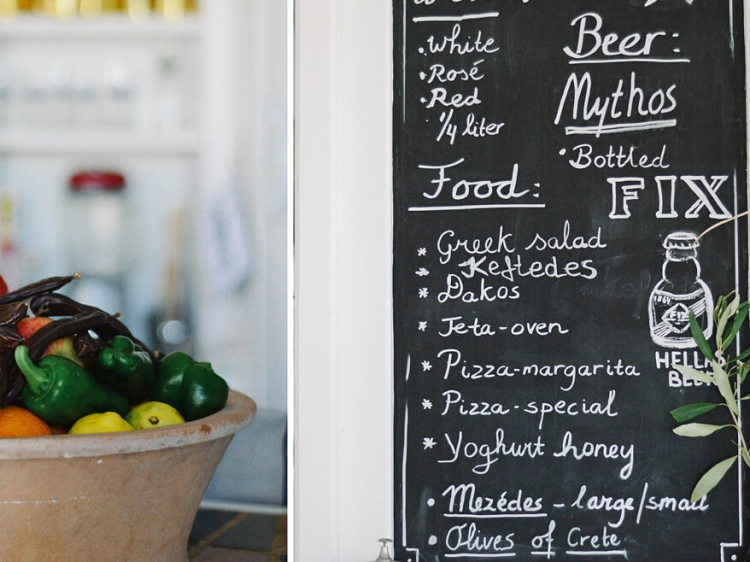 .White
.Rosé
.Red
1/4 liter
Beer:
Mythos
.Bottled
FIX
Food:
* Greek salad
* Keftedes
* Dakos
* Feta-oven
* Pizza-margarita
* Pizza-special
* Yoghurt honey
• Mezédes - large/small
• Olives of Crete
FIX
HELLAS
BEER